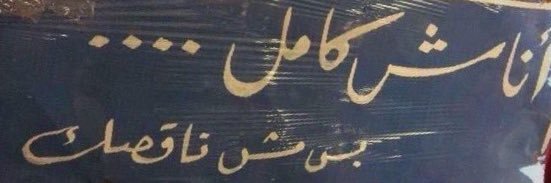 أنا مش كامل ....
بس مش ناقصك